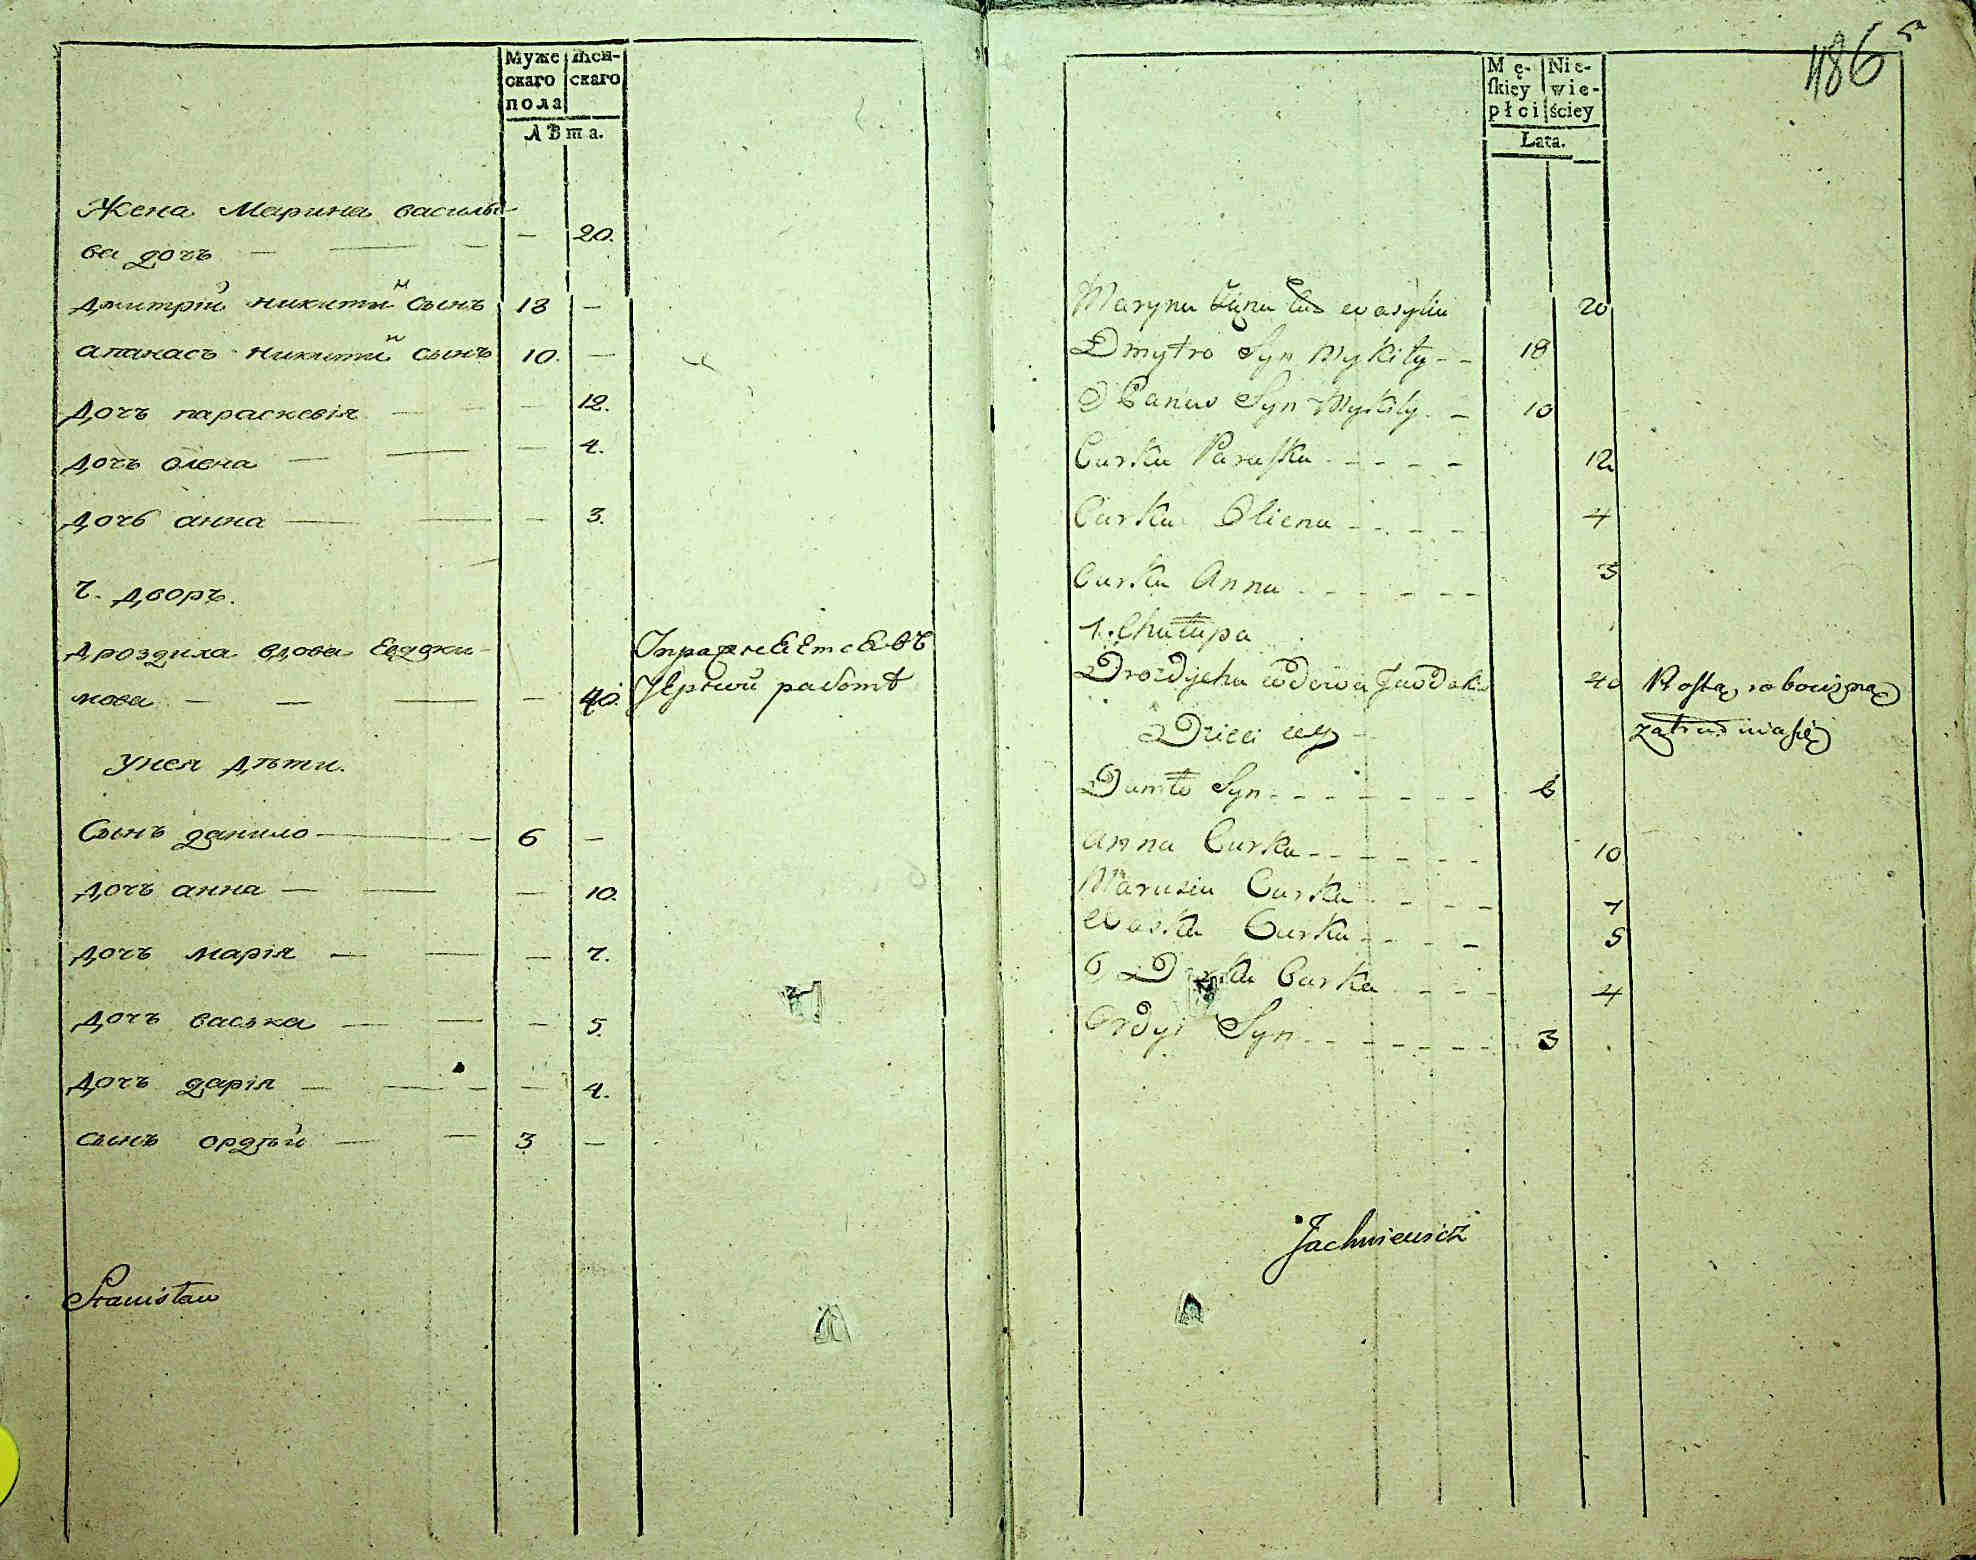 Муже
скаго
пола
Жен-
скаго
Лѣта.
Жена Марина василье
ва дочь — — — — 20.
Дмитрій никитин сынъ 18 —
апанасъ никитин сынъ 10. —
Дочь параскевія — — — 12.
Дочь олена — — — 4.
Дочь анна — — — 3.
Дворъ.
Дроздиха вдова Евдоки-
мова — — — — 40.
Упражняется въ
Черной работѣ
У нея дѣти.
Сынъ данило — — 6 —
Дочь анна — — — 10.
Дочь марія — — — 7.
Дочь васька — — — 5.
Дочь дарія — — — 4.
Сынъ ордѣй — — 3 —
Stanisław
186
Mę-
skiey
płci
Nie-
wie-
ściey
Lata.
Maryna żona wasyla 20
Dmytro Syn Mykity - - 18
Panas Syn Mykity - 10
Curka Paraska - - - - 12
Curka Oliena - - - - 4
Curka Anna - - - - 3
1. Chałupa
Drozdycha wdowa Jawdok 40
Prostą robocizną
zatrudnia się
Dzieci iey
Daniło Syn - - - - 6
Anna Curka - - - - 10
Marusia Curka - - - 7
Waska Curka - - - 5
Curka - - - 4
Ordyi Syn - - - - 3
Jachniewicz